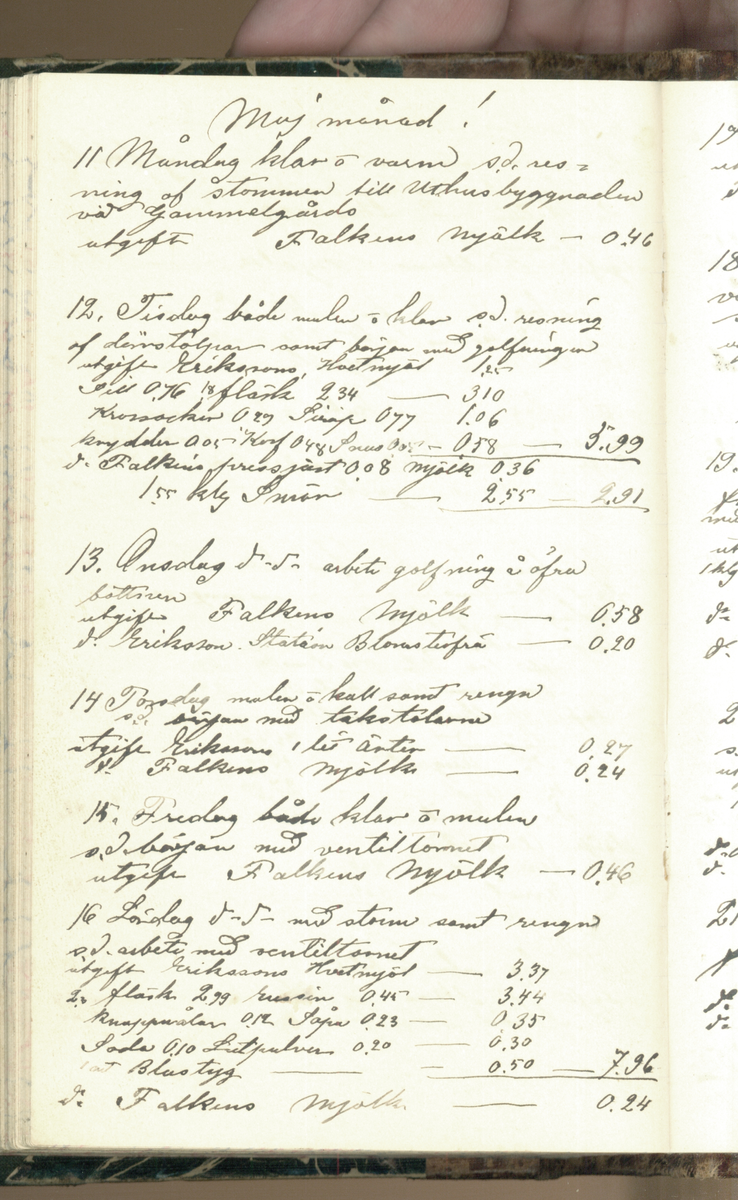 Maj månad!
11 Måndag klar o varm s.d. res=
ning af stommen till Uthusbyggnaden
vid Gammelgårds
utgift Falkens Mjölk — 0.46
12. Tisdag både mulen o klar s.d. resning
af dörrstolpar samt början med golfningen
utgift Erikssons, Hvetmjöl 1.25
Sill 0,76 1,8 fläsk 2 34 — 3 10
Krossocker 0 29 Sirap 0 77 1.06
krydder 0 05 Korf 0 48 Snus 0 05 — 0.58 — 5.99
d:o Falkens pressjäst 0.08 Mjölk 0.36
1 55 klg Smör — 2.55 — 2.91
13. Onsdag d-d- arbete golfning å öfra
bottnen
utgift Falkens Mjölk — 0.58
d:o Eriksson. Station Blomsterfrö — 0.20
14 Torsdag mulen o kall samt rengn
s.d. början med takstolarne
utgift Erikssons 1 lit Ärter — 0.27
d:o Falkens Mjölk — 0.24
15. Fredag både klar o mulen
s.d. början med ventiltornet
utgift Falkens Mjölk — 0.46
16 Lördag d-d- med storm samt rengn
s.d. arbete med ventiltornet
utgift Erikssons Hvetmjöl — 3.37
2.3 fläsk 2.99 russin 0.45 — 3.44
knappnålar 0.12 Såpa 0.23 — 0.35
Soda 0.10 Lutpulver 0.20 — 0.30
Blustyg — 0.50 — 7.96
d:o Falkens Mjölk — 0.24
17
18
19.
2
21